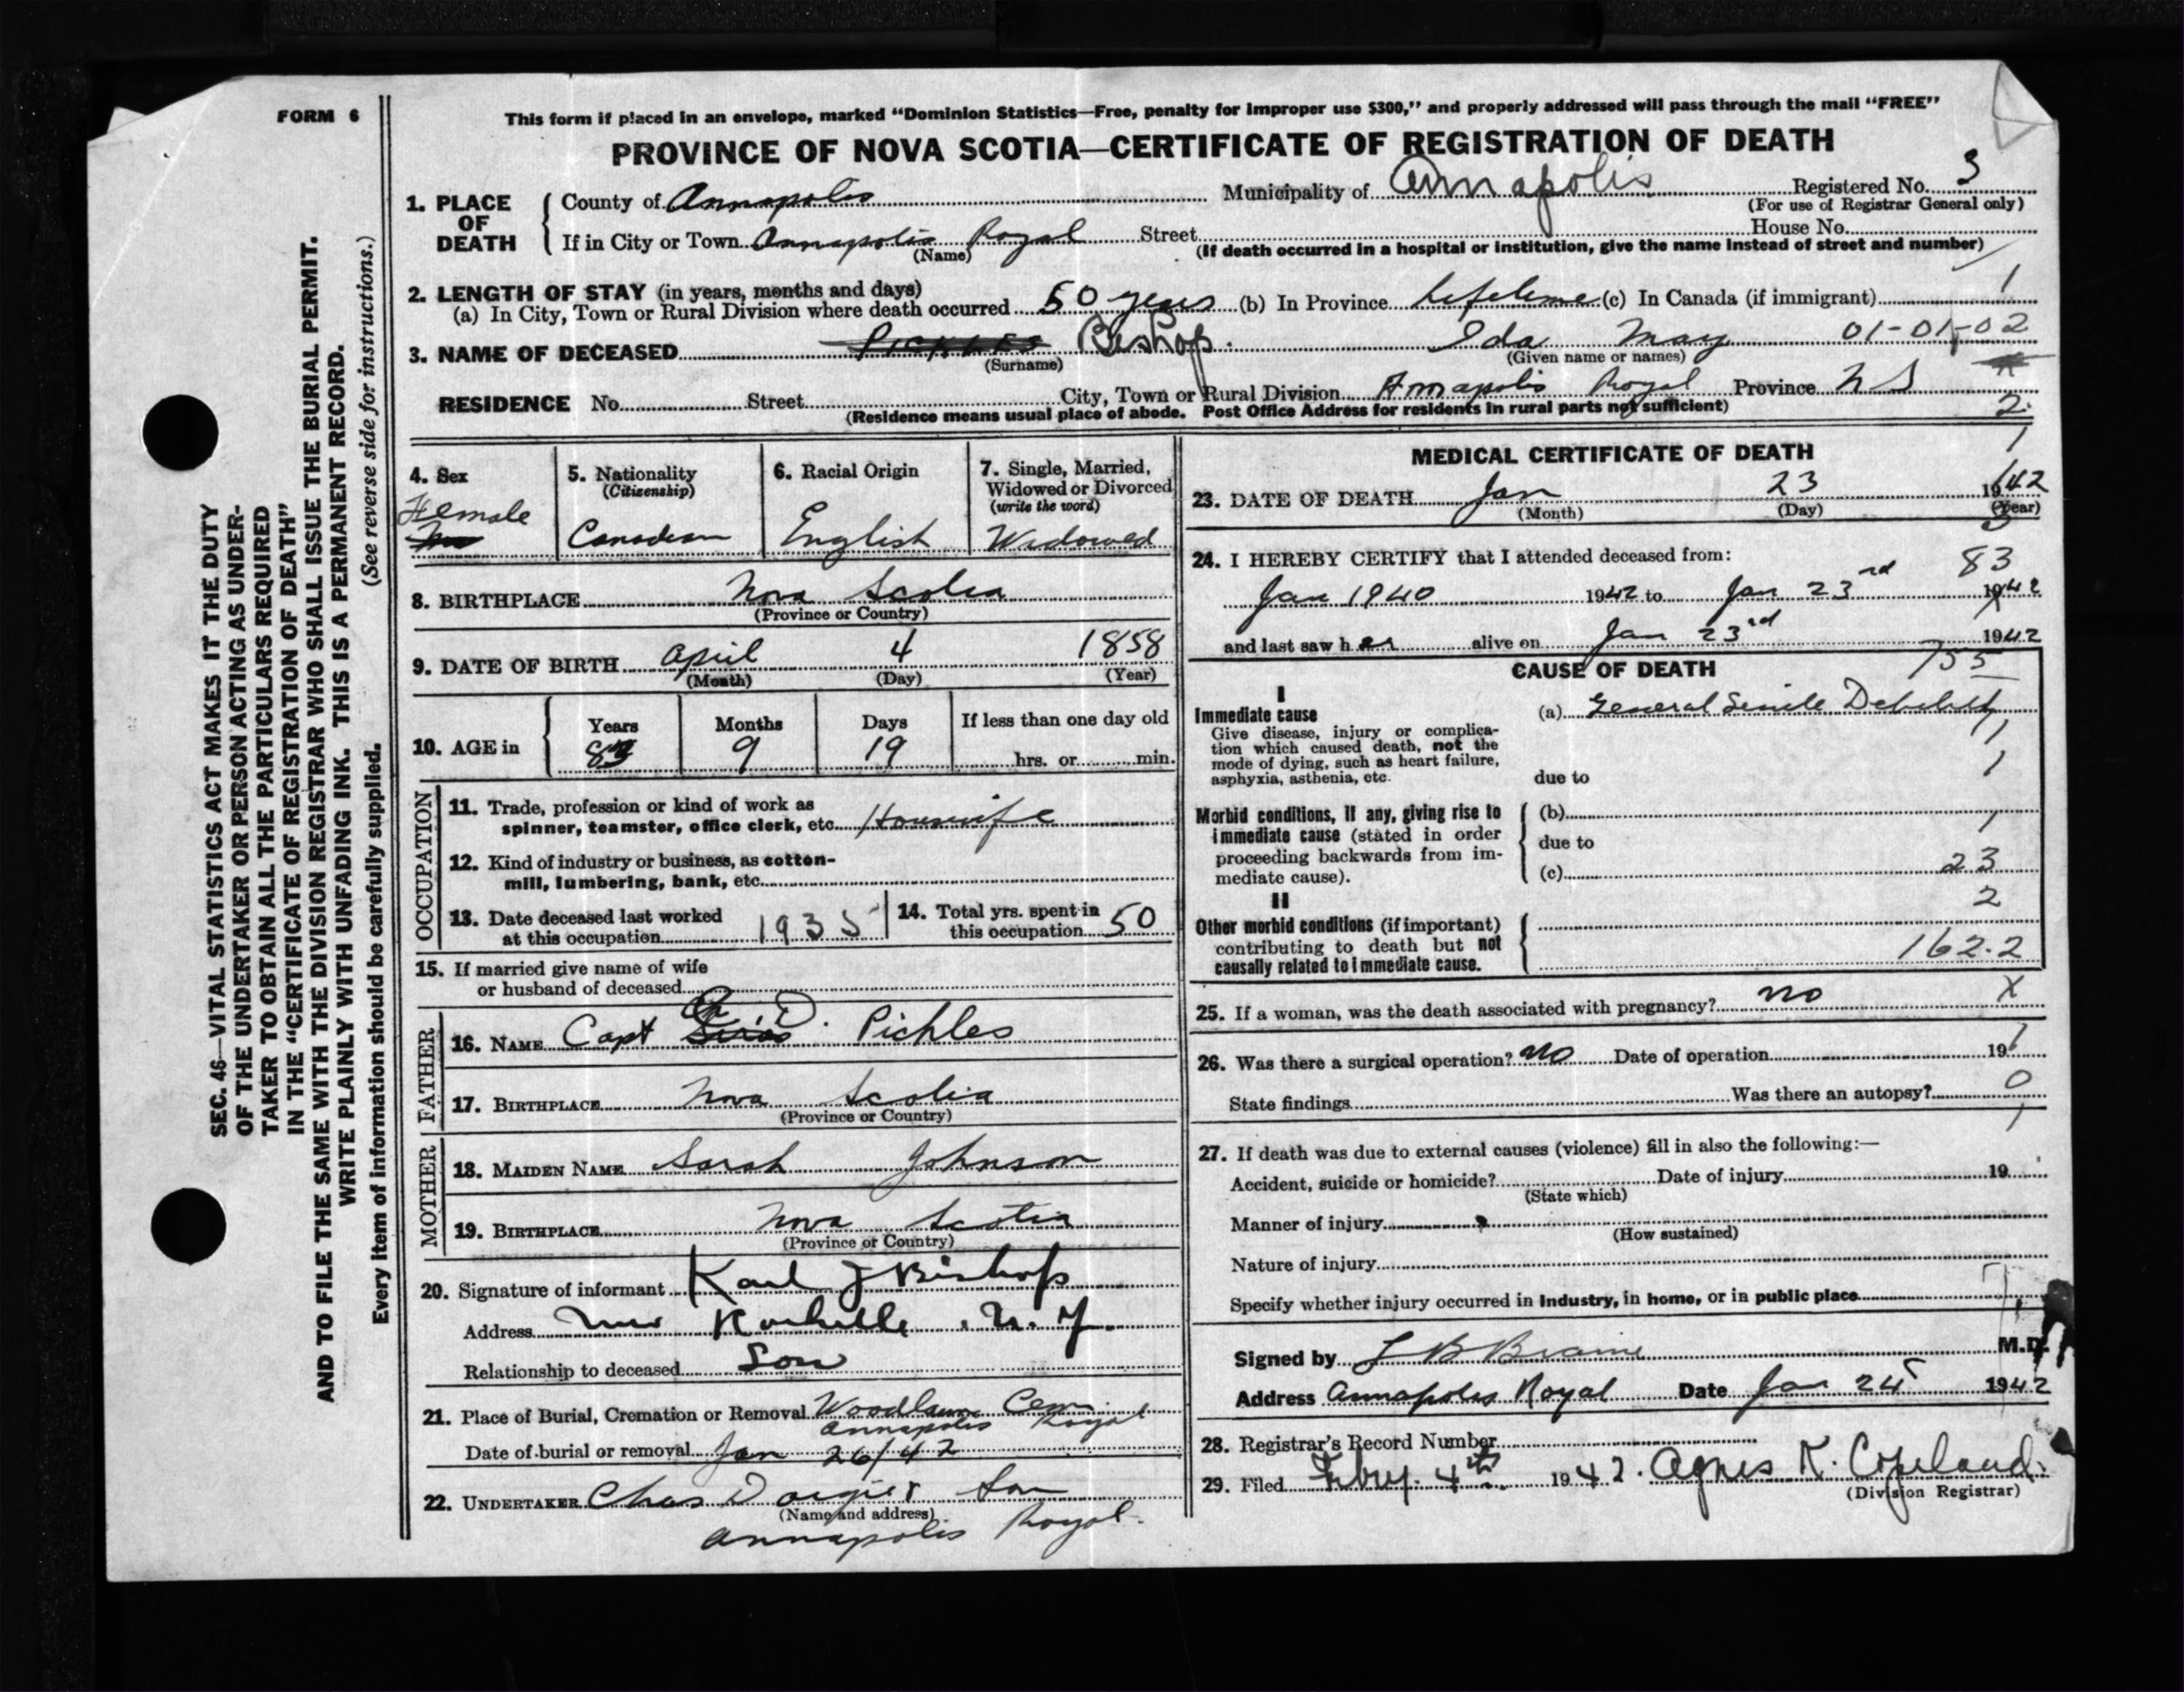 FORM 6
This form if placed in an envelope, marked "Dominion Statistics—Free, penalty for improper use $300," and properly addressed will pass through the mail "FREE"
PROVINCE OF NOVA SCOTIA—CERTIFICATE OF REGISTRATION OF DEATH
1. PLACE OF DEATH
County of Annapolis Municipality of Annapolis Registered No. 3
(For use of Registrar General only)
If in City or Town Annapolis Royal Street House No.
(Name) (If death occurred in a hospital or institution, give the name instead of street and number)
2. LENGTH OF STAY (in years, months and days)
(a) In City, Town or Rural Division where death occurred 50 years (b) In Province Lifetime (c) In Canada (if immigrant) 1
3. NAME OF DECEASED Pickles Bishop. Ida May 01-01-02
(Surname) (Given name or names)
RESIDENCE No. Street City, Town or Rural Division Annapolis Royal Province N S
(Residence means usual place of abode. Post Office Address for residents in rural parts not sufficient) 2
4. Sex
Female
5. Nationality
(Citizenship)
Canadian
6. Racial Origin
English
7. Single, Married, Widowed or Divorced
(write the word)
Widowed
8. BIRTHPLACE Nova Scotia
(Province or Country)
9. DATE OF BIRTH April 4 1858
(Month) (Day) (Year)
10. AGE in
Years Months Days If less than one day old
83 9 19 hrs. or min.
OCCUPATION
11. Trade, profession or kind of work as
spinner, teamster, office clerk, etc. Housewife
12. Kind of industry or business, as cotton-
mill, lumbering, bank, etc.
13. Date deceased last worked
at this occupation 1935
14. Total yrs. spent in
this occupation 50
15. If married give name of wife
or husband of deceased
FATHER
16. NAME Capt D. Pickles
17. BIRTHPLACE Nova Scotia
(Province or Country)
MOTHER
18. MAIDEN NAME Sarah Johnson
19. BIRTHPLACE Nova Scotia
(Province or Country)
20. Signature of informant Karl J Bishop
Address New Rochelle, N. Y.
Relationship to deceased Son
21. Place of Burial, Cremation or Removal Woodlawn Cem.
Annapolis Royal
Date of burial or removal Jan 26/42
22. UNDERTAKER Chas Dargie & Son
(Name and address)
Annapolis Royal.
MEDICAL CERTIFICATE OF DEATH 1
23. DATE OF DEATH Jan 23 1942
(Month) (Day) (Year)
24. I HEREBY CERTIFY that I attended deceased from: 83
Jan 1940 1942 to Jan 23rd 1942
and last saw her alive on Jan 23rd 1942
CAUSE OF DEATH 755
I
Immediate cause
Give disease, injury or complica-
tion which caused death, not the
mode of dying, such as heart failure,
asphyxia, asthenia, etc.
(a) General Senile Debility
due to
Morbid conditions, if any, giving rise to
immediate cause (stated in order
proceeding backwards from im-
mediate cause).
(b)
due to
(c) 23
II 2
Other morbid conditions (if important)
contributing to death but not
causally related to immediate cause.
162.2
25. If a woman, was the death associated with pregnancy? no X
26. Was there a surgical operation? no Date of operation 19
State findings Was there an autopsy? 0
27. If death was due to external causes (violence) fill in also the following:—
Accident, suicide or homicide? Date of injury 19
(State which)
Manner of injury
(How sustained)
Nature of injury
Specify whether injury occurred in industry, in home, or in public place
Signed by L B Braine M.D.
Address Annapolis Royal Date Jan 25 1942
28. Registrar's Record Number
29. Filed Febry. 4th 1942. Agnes K. Copeland.
(Division Registrar)
SEC. 46—VITAL STATISTICS ACT MAKES IT THE DUTY
OF THE UNDERTAKER OR PERSON ACTING AS UNDER-
TAKER TO OBTAIN ALL THE PARTICULARS REQUIRED
IN THE "CERTIFICATE OF REGISTRATION OF DEATH"
AND TO FILE THE SAME WITH THE DIVISION REGISTRAR WHO SHALL ISSUE THE BURIAL PERMIT.
WRITE PLAINLY WITH UNFADING INK. THIS IS A PERMANENT RECORD.
(See reverse side for instructions.)
Every item of information should be carefully supplied.